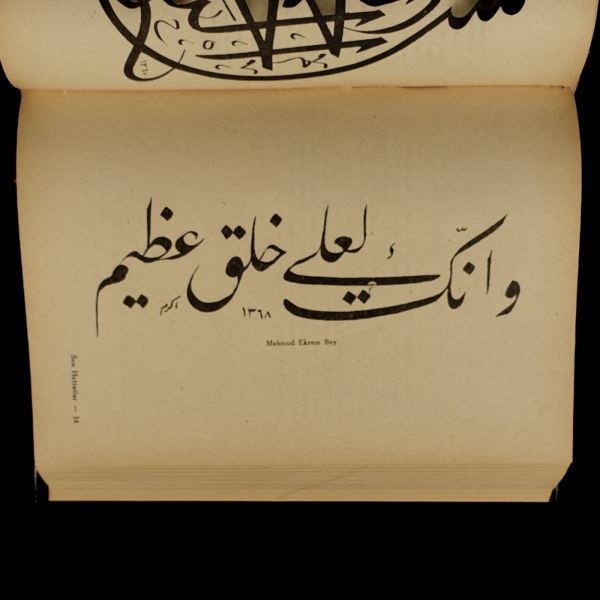 وانك لعلے خلق عظيم
اكرم ١٣٦٨
Mahmud Ekrem Bey
Son Hattatlar — 14